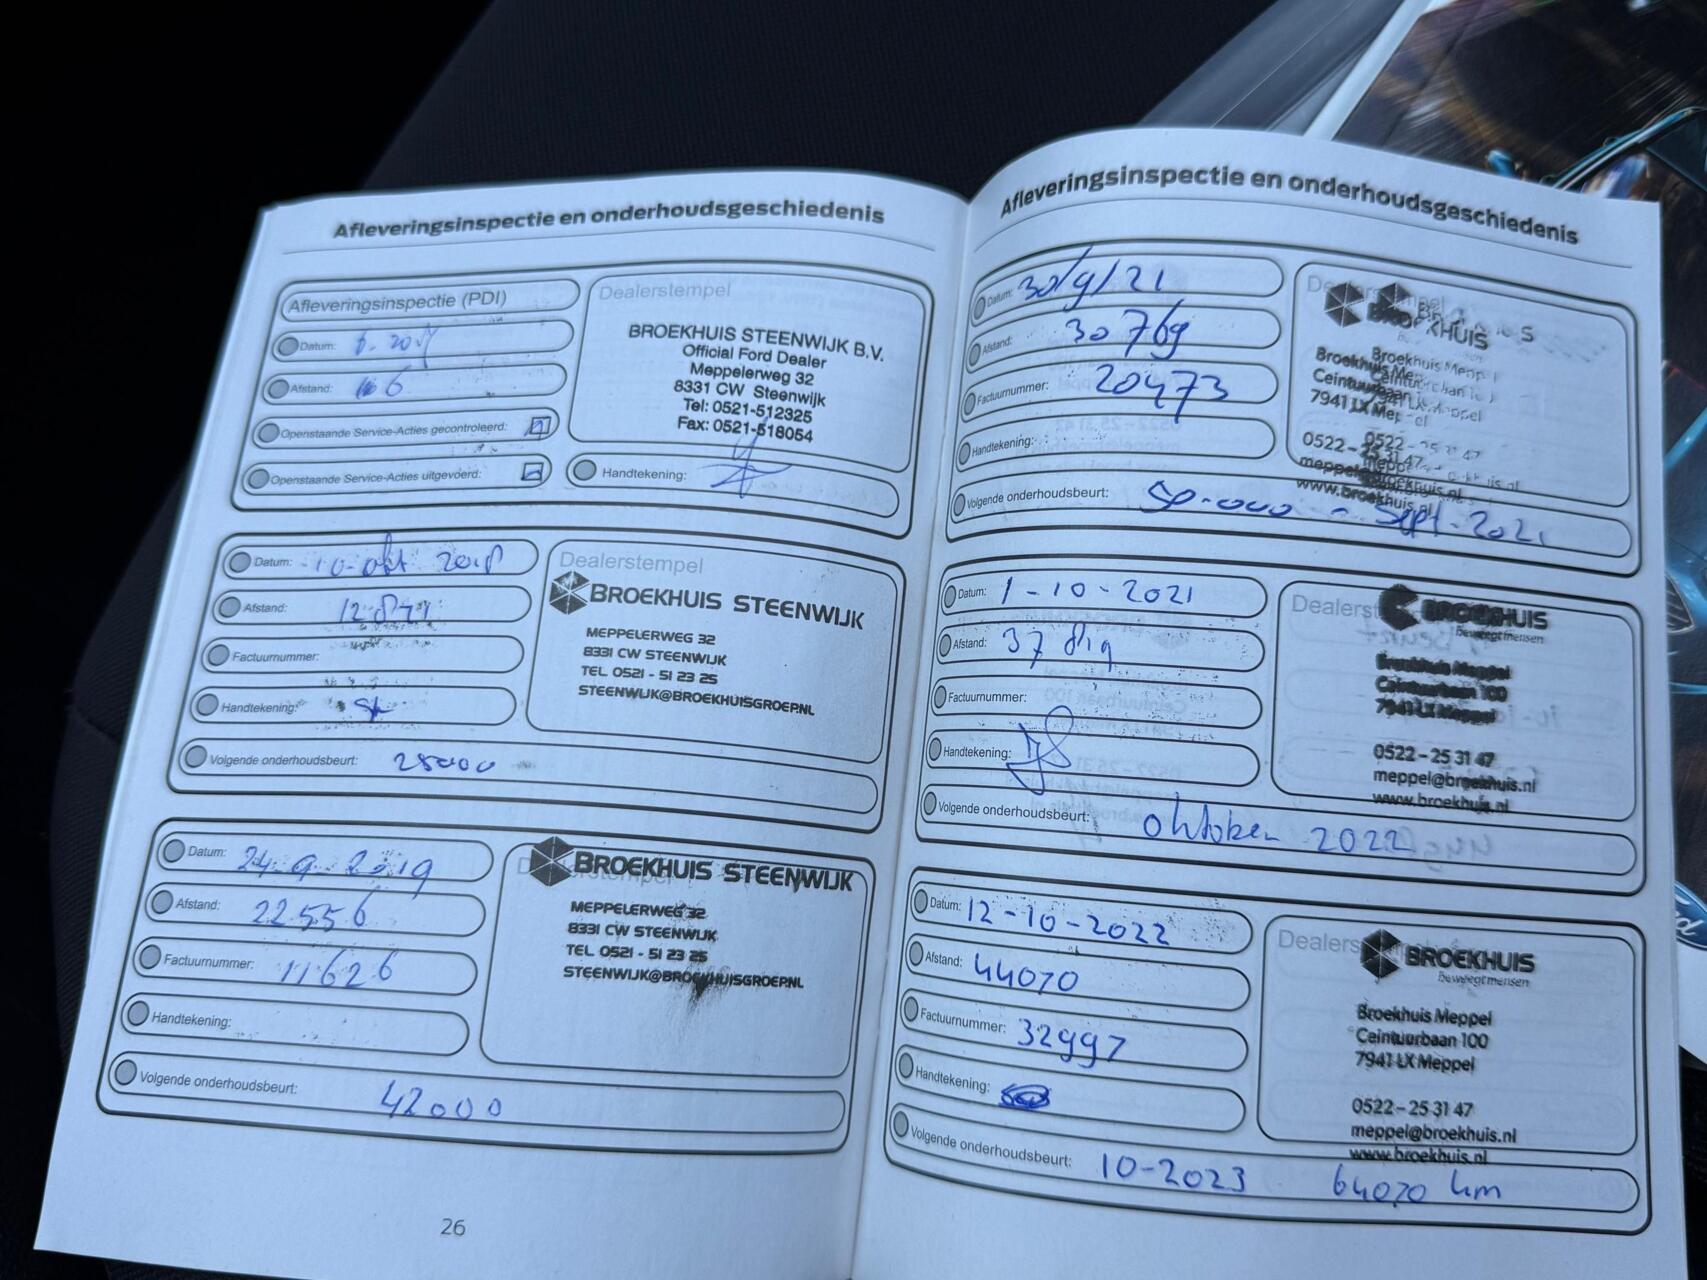 Afleveringsinspectie en onderhoudsgeschiedenis
Afleveringsinspectie (PDI)
Datum:
Afstand: 6
Openstaande Service-Acties gecontroleerd:
Openstaande Service-Acties uitgevoerd:
Dealerstempel
BROEKHUIS STEENWIJK B.V.
Official Ford Dealer
Meppelerweg 32
8331 CW Steenwijk
Tel: 0521-512325
Fax: 0521-518054
Handtekening:
Datum: 10-okt 2018
Afstand:
Factuurnummer:
Handtekening:
Dealerstempel
BROEKHUIS STEENWIJK
MEPPELERWEG 32
8331 CW STEENWIJK
TEL 0521 - 51 23 25
STEENWIJK@BROEKHUISGROEP.NL
Volgende onderhoudsbeurt: 25000
Datum: 24-9-2019
Afstand: 22556
Factuurnummer: 11626
Handtekening:
Dealerstempel
BROEKHUIS STEENWIJK
MEPPELERWEG 32
8331 CW STEENWIJK
TEL 0521 - 51 23 25
STEENWIJK@BROEKHUISGROEP.NL
Volgende onderhoudsbeurt: 42000
26
Afleveringsinspectie en onderhoudsgeschiedenis
Datum: 30/9/21
Afstand: 30769
Factuurnummer: 20473
Handtekening:
BROEKHUIS
Broekhuis Meppel
Ceintuurbaan
7941 LX Meppel
0522-25 31 47
meppel@broekhuis.nl
www.broekhuis.nl
Volgende onderhoudsbeurt: 50.000 - sept. 2021
Datum: 1-10-2021
Afstand: 37819
Factuurnummer:
Handtekening:
BROEKHUIS
beweegt mensen
Broekhuis Meppel
Ceintuurbaan 100
7941 LX Meppel
0522-25 31 47
meppel@broekhuis.nl
www.broekhuis.nl
Volgende onderhoudsbeurt: oktober 2022
Datum: 12-10-2022
Afstand: 44070
Factuurnummer: 32997
Handtekening:
BROEKHUIS
beweegt mensen
Broekhuis Meppel
Ceintuurbaan 100
7941 LX Meppel
0522-25 31 47
meppel@broekhuis.nl
www.broekhuis.nl
Volgende onderhoudsbeurt: 10-2023 64070 km